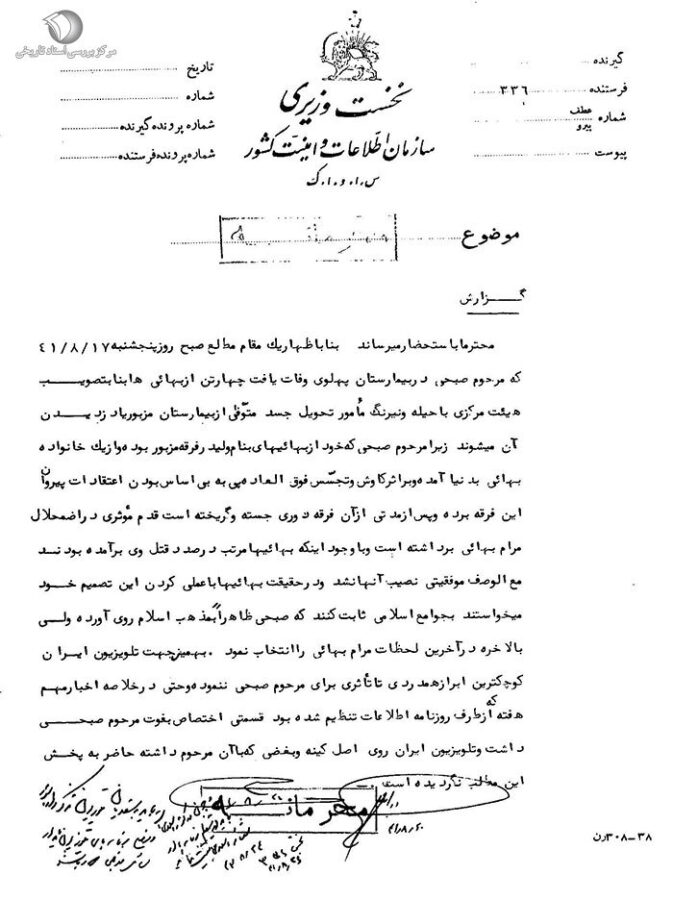 مرکز بررسی اسناد تاریخی
نخست وزیری
سازمان اطلاعات و امنیت کشور
س.ا.و.ا.ک
گیرنده
فرستنده ۳۳۶
شماره عطف
پیرو
پیوست
تاریخ
شماره
شماره پرونده گیرنده
شماره پرونده فرستنده
موضوع
گزارش
محترما باستحضار میرساند بنا باظهار یک مقام مطلع صبح روز پنجشنبه ۴۱/۸/۱۷
که مرحوم صبحی در بیمارستان پهلوی وفات یافت چهارتن از بهائی ها بنا بتصویب
هیئت مرکزی با حیله و نیرنگ مأمور تحویل جسد متوفی از بیمارستان مزبور یا دزدیدن
آن میشوند زیرا مرحوم صبحی که خود از بهائیهای بنام ولیدر فرقه مزبور بوده و از یک خانواده
بهائی بدنیا آمده و براثر کاوش و تجسس فوق العاده پی به بی اساس بودن اعتقادات پیروان
این فرقه برده و پس از مدتی از آن فرقه دوری جسته و گریخته است قدم مؤثری در اضمحلال
مرام بهائی برداشته است و با وجود اینکه بهائیها مرتب درصدد قتل وی برآمده بودند
مع الوصف موفقیتی نصیب آنها نشد و در حقیقت بهائیها با عملی کردن این تصمیم خود
میخواستند بجوامع اسلامی ثابت کنند که صبحی ظاهراً بمذهب اسلام روی آورده ولی
بالاخره در آخرین لحظات مرام بهائی را انتخاب نمود . بهمین جهت تلویزیون ایران
کوچکترین ابراز همدردی تا تأثری برای مرحوم صبحی ننموده و حتی در خلاصه اخبار مهم
هفته که از طرف روزنامه اطلاعات تنظیم شده بود قسمتی اختصاص بفوت مرحوم صبحی
داشت و تلویزیون ایران روی اصل کینه و بغضی که با آن مرحوم داشته حاضر به پخش
این مطلب نگردیده است .
محرمانه
۳۰۸-۳۸ رن